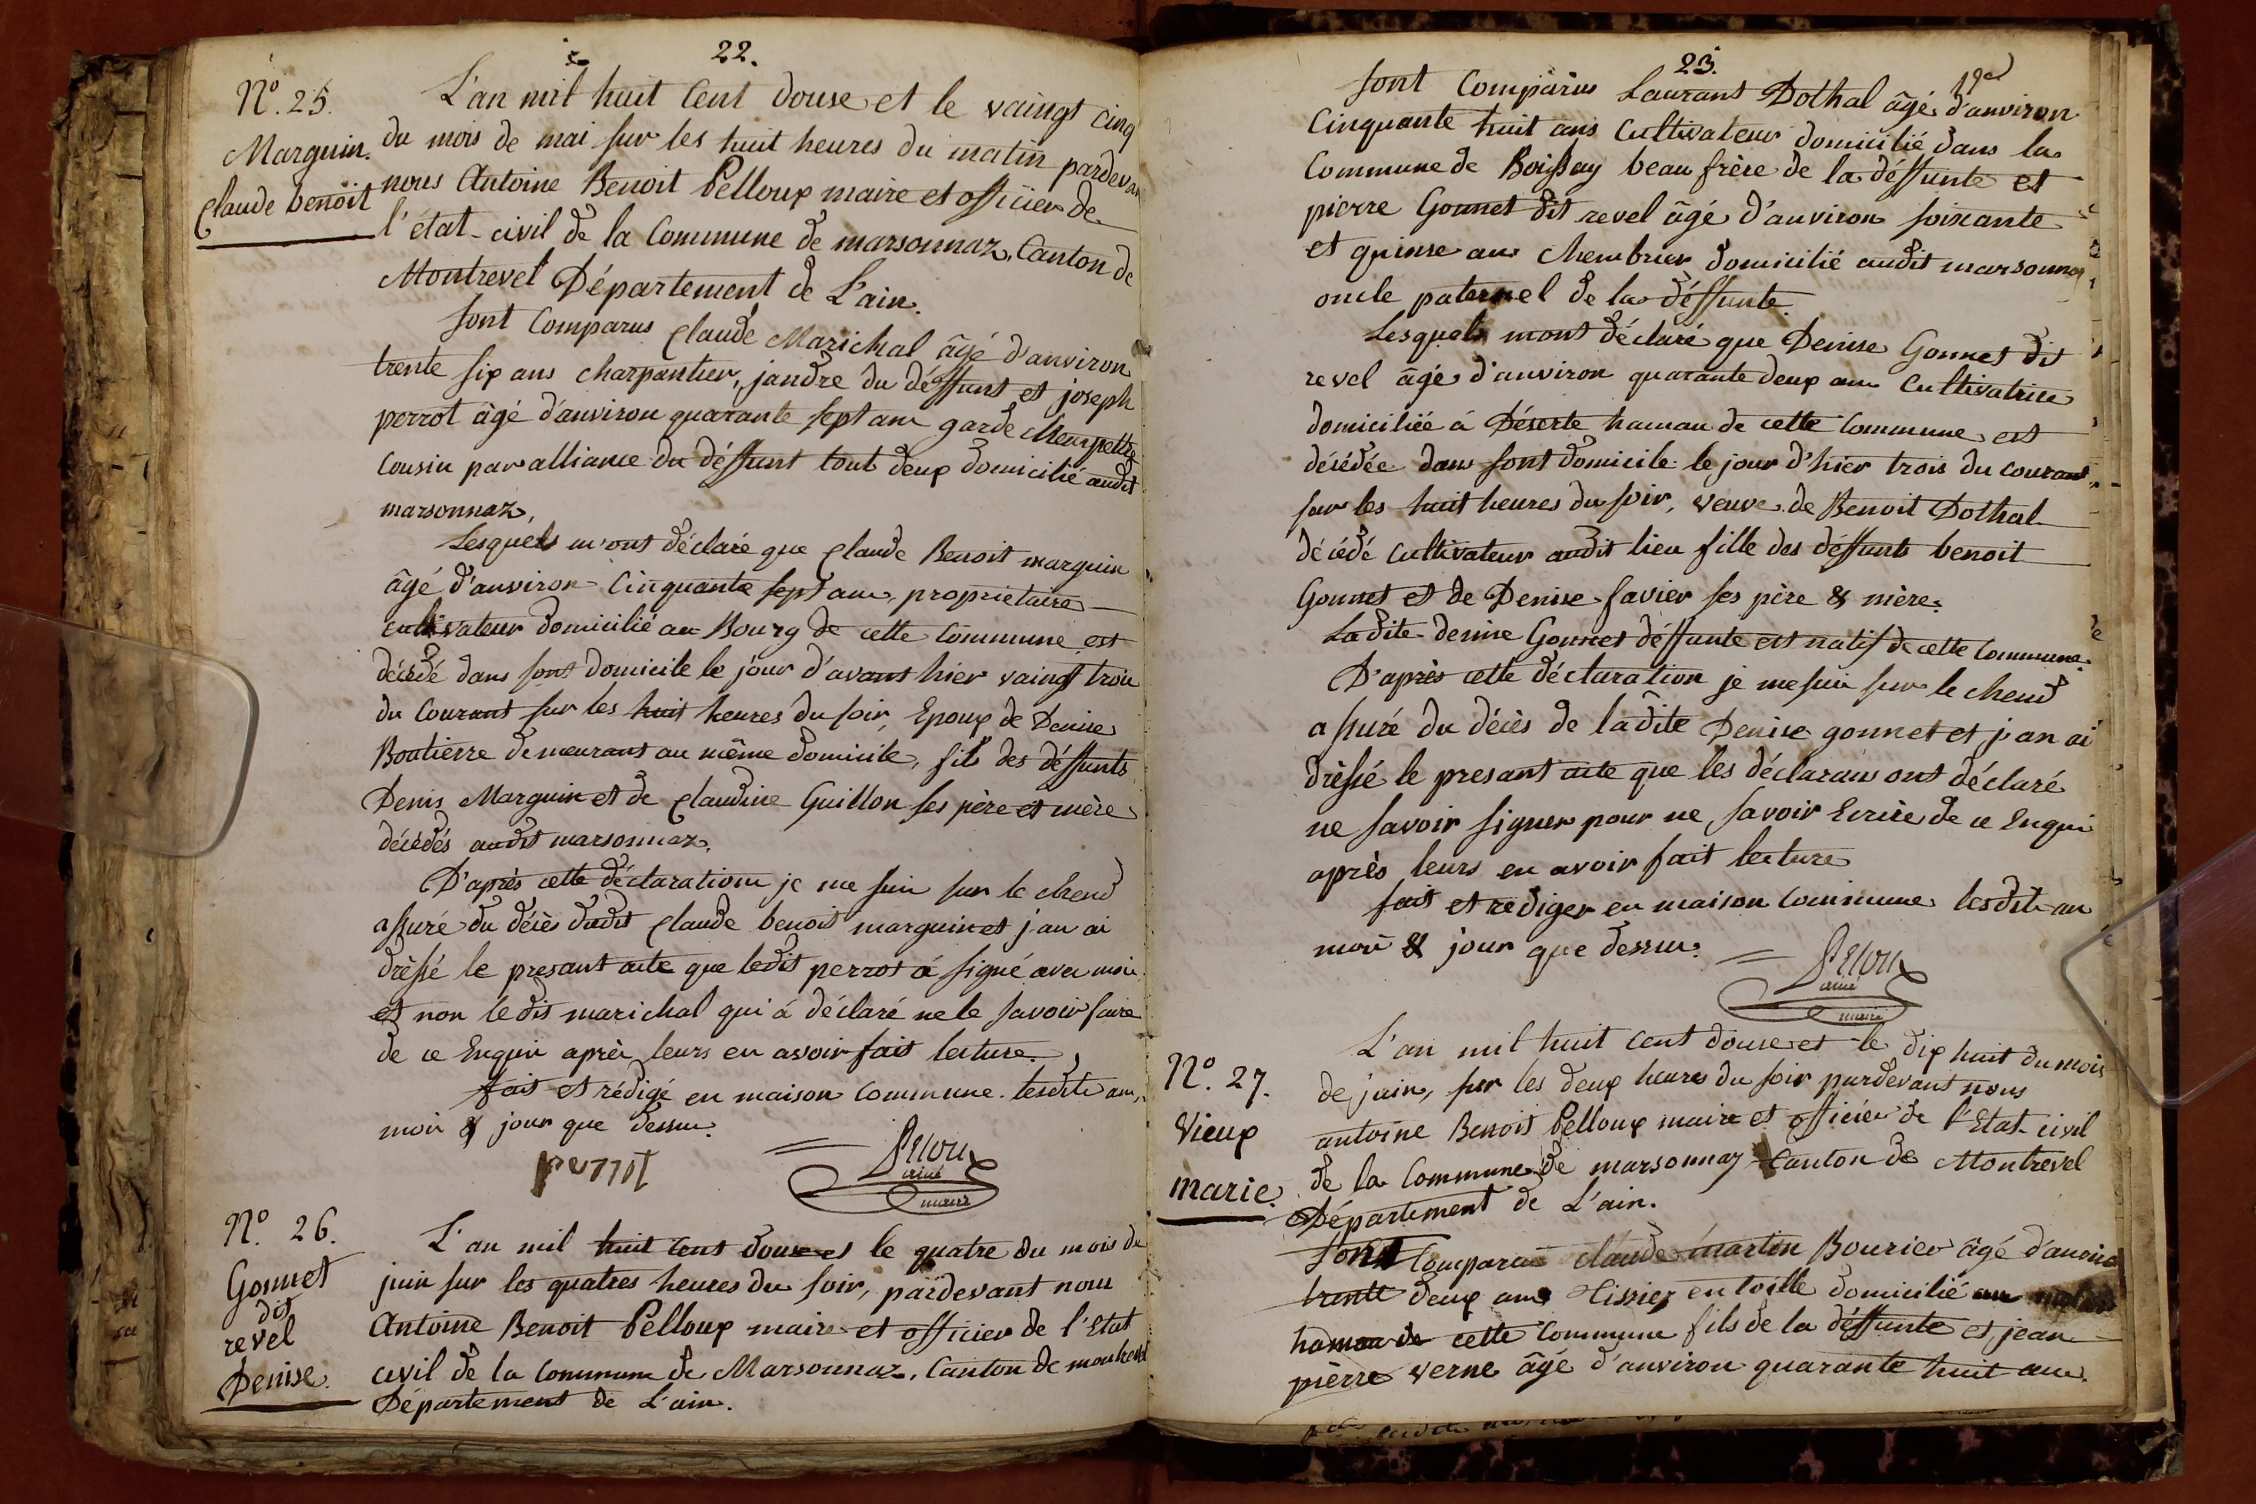 22.
N.º 25.
Marguin.
Claude benoit
L'an mil huit Cent douse et le vaingt cinq
du mois de mai sur les huit heures du matin pardevan
nous Antoine Benoit Pelloux maire et officier de
l'état-civil de la Commune de marsonnaz, Canton de
Montrevel Département de L'ain.
sont Comparus Claude Marichal âgé d'anviron
trente six ans charpantier, jandre du déffunt et joseph
perrot âgé d'anviron quarante sept ans garde chempettre
Cousin par alliance du déffunt tout deux domicilié audit
marsonnaz,
Lesquels m'ont déclaré que Claude Benoit marguin
âgé d'anviron Cinquante sept ans, proprietaire
cultivateur domicilié au Bourg de cette Commune est
décédé dans sont domicile le jour d'avant hier vaingt trois
du Courant sur les huit heures du soir, Epoux de Denise
Boutierre demeurant au même domicile, fils des déffunts
Denis Marguin et de Claudine Guillon ses père et mère
décédés audit marsonnaz.
D'après cette déclaration je me suis sur le cheud
assuré du décès dudit Claude benoit marguin et j'an ai
drèssé le presant acte que ledit perrot á signé avec moi
et non ledit marichal qui á déclaré ne le savoir faire
de ce Enquis après leurs en avoir fait lecture.
fait et rédigé en maison Commune lesdits an,
mois & jour que dessus.
perrot
Peloux
ainé
maire
N.º 26.
Gonnet
dit
revel
Denise.
L'an mil huit Cent douse et le quatre du mois de
juin sur les quatres heures du soir, pardevant nous
Antoine Benoit Pelloux maire et officier de l'Etat
civil de la Commune de Marsonnaz, Canton de montrevel
Département de L'ain.
23.
sont Comparus Laurant Dothal âgé d'anviron
Cinquante huit ans Cultivateur domicilié dans la
Commune de Boissey beau frère de la déffunte et
pierre Gonnet dit revel âgé d'anviron soixante
et quinse ans chembrier domicilié audit marsonnaz
oncle paternel de la déffunte.
Lesquels mont déclaré que Denise Gonnet dit
revel âgé d'anviron quarante deux ans Cultivatrice
domiciliée á Déserte hamau de cette Commune est
décédée dans sont domicile le jour d'hier trois du courant
sur les huit heures du soir, veuve de Benoit Dothal
décédé cultivateur audit lieu fille des déffunts benoit
Gonnet et de Denise favier ses père & mère.
Ladite denise Gonnet déffunte est natif de cette Commune.
D'après cette déclaration je me suis sur le cheud
assuré du décès de ladite Denise gonnet et j'an ai
drèssé le presant acte que les déclarans ont déclaré
ne savoir signer pour ne savoir Ecrire de ce Enqui
après leurs en avoir fait lecture
fait et rediger en maison Commune lesdits an
mois & jour que dessus.
Peloux
ainé
maire
N.º 27.
Vieux
marie.
L'an mil huit Cent douse et le dix huit du mois
de juin, sur les deux heures du soir pardevant nous
antoine Benoit Pelloux maire et officier de l'Etat-civil
de la Commune de marsonnaz Canton de Montrevel
Département de L'ain.
sont Comparus claude martin Bourier âgé d'anviron
trente deux ans Tissier en toille domicilié au
hamau de cette Commune fils de la déffunte et jean
pièrre verne âgé d'anviron quarante huit ans.